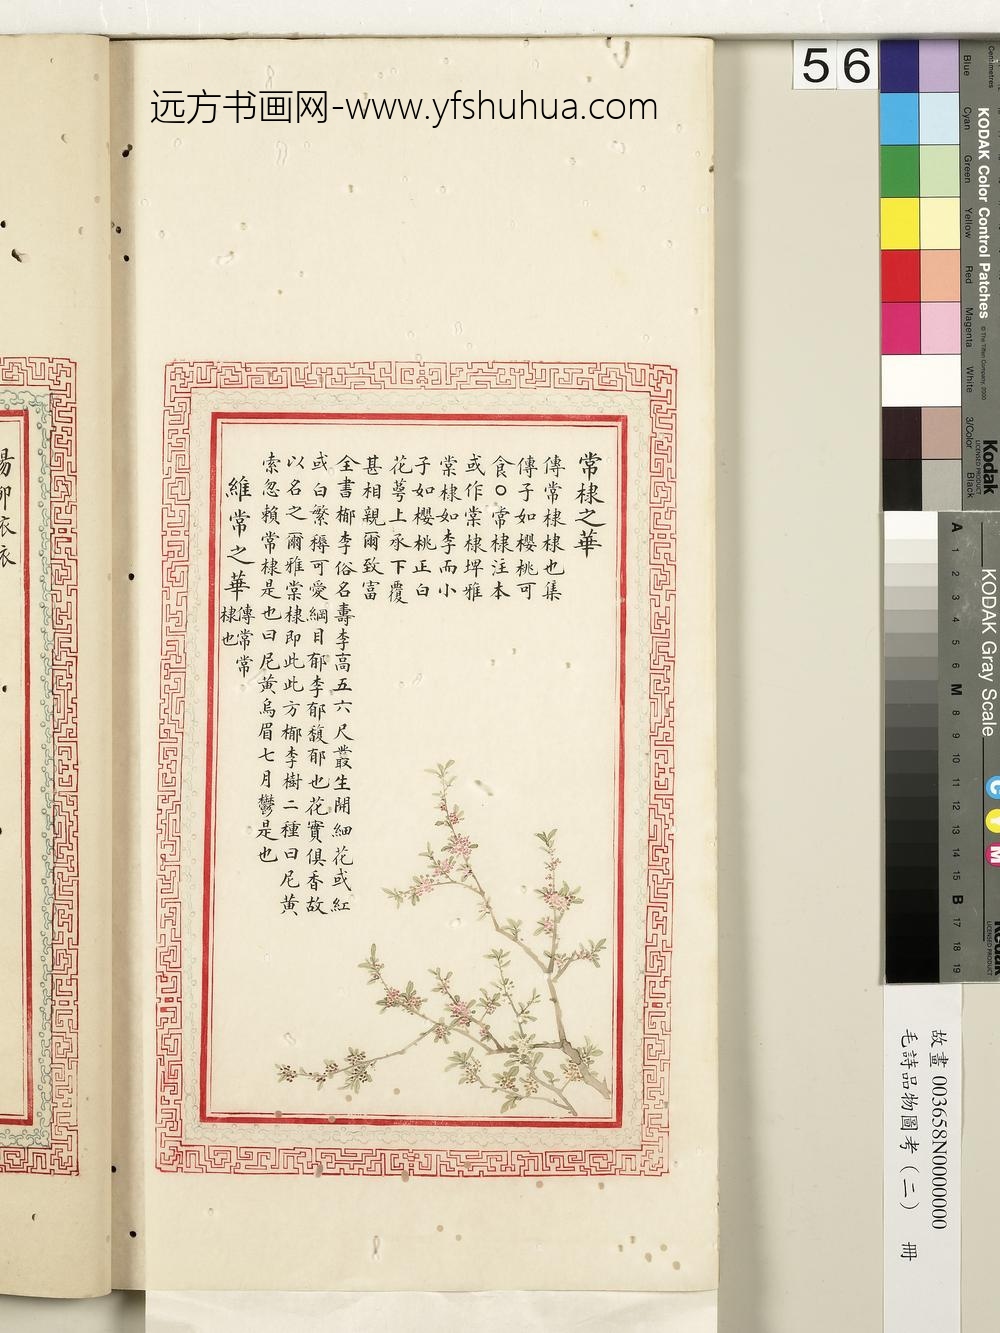 远方书画网-www.yfshuhua.com
56
常棣之華
傳常棣棣也集
傳子如櫻桃可
食○常棣注本
或作棠棣埤雅
棠棣如李而小
子如櫻桃正白
花萼上承下覆
甚相親爾致富
全書郁李俗名壽李高五六尺叢生開細花或紅
或白繁縟可愛綱目郁李郁馥郁也花實俱香故
以名之爾雅棠棣即此此方郁李樹二種曰尼黃
索忽賴常棣是也曰尼黃烏眉七月鬱是也
維常之華
傳常常
棣也
楊柳依依
KODAK Color Control Patches
© The Tiffen Company, 2000
Centimetres
Blue
Cyan
Green
Yellow
Red
Magenta
White
3/Color
Black
Kodak
LICENSED PRODUCT
KODAK Gray Scale
A 1 2 3 4 5 6 M 8 9 10 11 12 13 14 15 B 17 18 19
C
Y
M
Kodak
LICENSED PRODUCT
故畫 003658N0000000
毛詩品物圖考（二） 冊